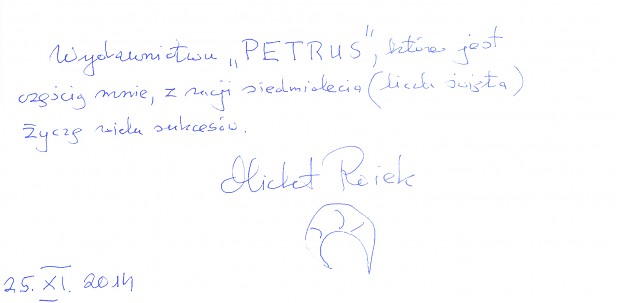 Wydawnictwu „PETRUS”, które jest
częścią mnie, z racji siedmiolecia (liczba święta)
życzę wielu sukcesów.
Michał Rożek
25. XI. 2014